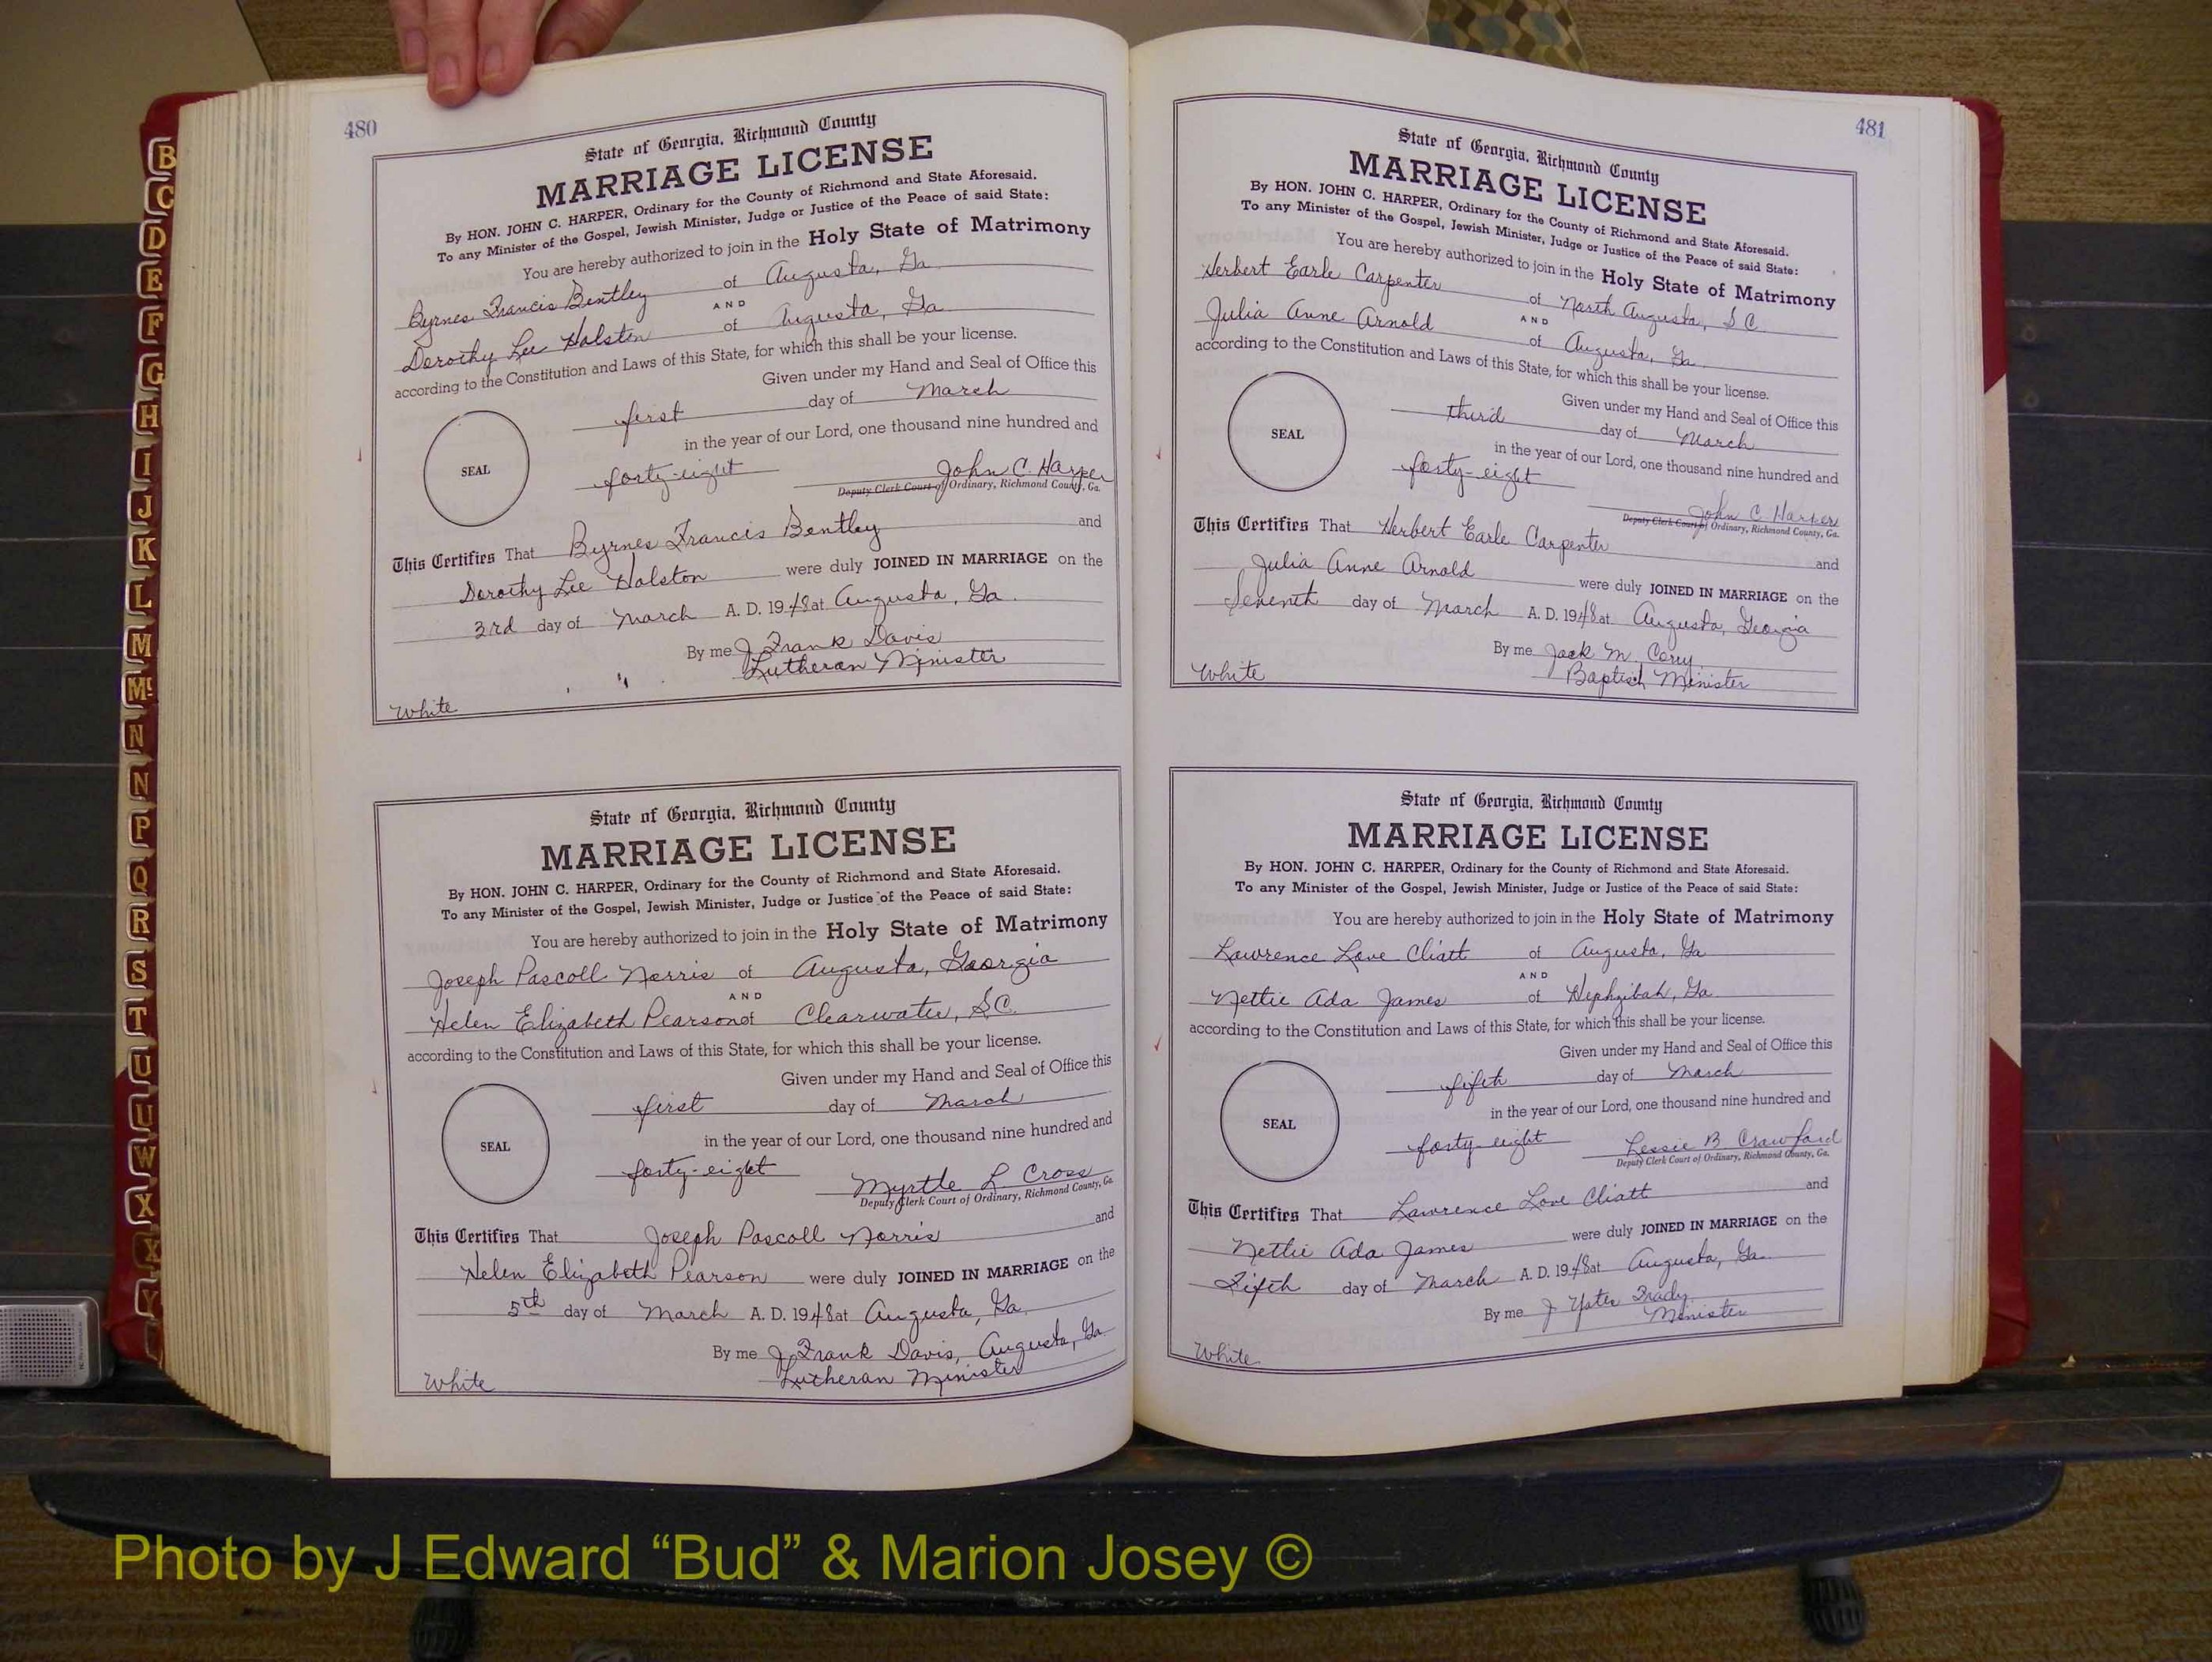 480
State of Georgia, Richmond County
MARRIAGE LICENSE
By HON. JOHN C. HARPER, Ordinary for the County of Richmond and State Aforesaid.
To any Minister of the Gospel, Jewish Minister, Judge or Justice of the Peace of said State:
You are hereby authorized to join in the Holy State of Matrimony
Byrnes Francis Bentley of Augusta, Ga.
AND
Dorothy Lee Holston of Augusta, Ga.
according to the Constitution and Laws of this State, for which this shall be your license.
Given under my Hand and Seal of Office this
first day of March
in the year of our Lord, one thousand nine hundred and
SEAL
forty-eight John C. Harper
Deputy Clerk Court of Ordinary, Richmond County, Ga.
This Certifies That Byrnes Francis Bentley and
Dorothy Lee Holston were duly JOINED IN MARRIAGE on the
3rd day of March A. D. 1948 at Augusta, Ga.
By me J. Frank Davis
Lutheran Minister
White
State of Georgia, Richmond County
MARRIAGE LICENSE
By HON. JOHN C. HARPER, Ordinary for the County of Richmond and State Aforesaid.
To any Minister of the Gospel, Jewish Minister, Judge or Justice of the Peace of said State:
You are hereby authorized to join in the Holy State of Matrimony
Joseph Pascoll Norris of Augusta, Georgia
AND
Helen Elizabeth Pearson of Clearwater, S.C.
according to the Constitution and Laws of this State, for which this shall be your license.
Given under my Hand and Seal of Office this
first day of March
in the year of our Lord, one thousand nine hundred and
SEAL
forty-eight Myrtle L Cross
Deputy Clerk Court of Ordinary, Richmond County, Ga.
This Certifies That Joseph Pascoll Norris and
Helen Elizabeth Pearson were duly JOINED IN MARRIAGE on the
5th day of March A. D. 1948 at Augusta, Ga.
By me J. Frank Davis, Augusta, Ga.
Lutheran Minister
White
481
State of Georgia, Richmond County
MARRIAGE LICENSE
By HON. JOHN C. HARPER, Ordinary for the County of Richmond and State Aforesaid.
To any Minister of the Gospel, Jewish Minister, Judge or Justice of the Peace of said State:
You are hereby authorized to join in the Holy State of Matrimony
Herbert Earle Carpenter of North Augusta, S.C.
AND
Julia Anne Arnold of Augusta, Ga.
according to the Constitution and Laws of this State, for which this shall be your license.
Given under my Hand and Seal of Office this
third day of March
in the year of our Lord, one thousand nine hundred and
SEAL
forty-eight John C. Harper
Deputy Clerk Court of Ordinary, Richmond County, Ga.
This Certifies That Herbert Earle Carpenter and
Julia Anne Arnold were duly JOINED IN MARRIAGE on the
Seventh day of March A. D. 1948 at Augusta, Georgia
By me Jack M.
Baptist Minister
White
State of Georgia, Richmond County
MARRIAGE LICENSE
By HON. JOHN C. HARPER, Ordinary for the County of Richmond and State Aforesaid.
To any Minister of the Gospel, Jewish Minister, Judge or Justice of the Peace of said State:
You are hereby authorized to join in the Holy State of Matrimony
Lawrence Love Cliatt of Augusta, Ga.
AND
Nettie Ada James of Hephzibah, Ga.
according to the Constitution and Laws of this State, for which this shall be your license.
Given under my Hand and Seal of Office this
fifth day of March
in the year of our Lord, one thousand nine hundred and
SEAL
forty-eight Lessie B Crawford
Deputy Clerk Court of Ordinary, Richmond County, Ga.
This Certifies That Lawrence Love Cliatt and
Nettie Ada James were duly JOINED IN MARRIAGE on the
Fifth day of March A. D. 1948 at Augusta, Ga.
By me J
Minister
White
B
C
D
E
F
G
H
I
J
K
L
M
Mc
N
N
P
Q
R
S
T
U
U
W
X
X
Y
Photo by J Edward “Bud” & Marion Josey ©